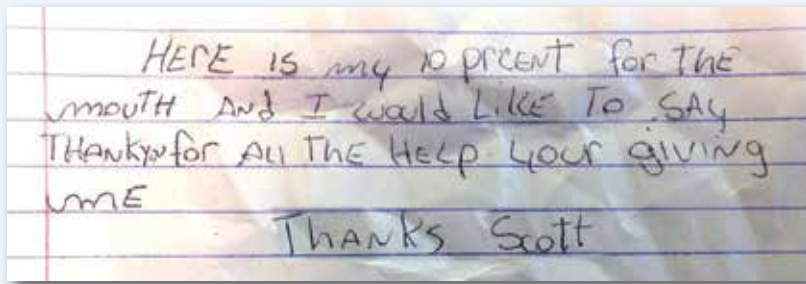 HErE is my 10 prcent for THE
mouTH ANd I would LikE To SAy
THANkyou for All THE HELp your giving
mE
THANKS Scott